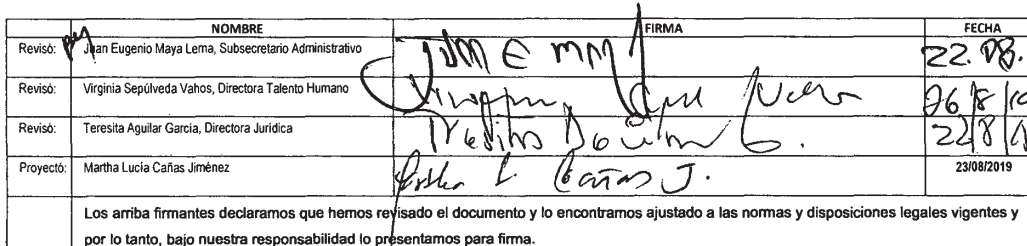 NOMBRE FIRMA FECHA
Revisó: Juan Eugenio Maya Lema, Subsecretario Administrativo 22.08.
Revisó: Virginia Sepúlveda Vahos, Directora Talento Humano
Revisó: Teresita Aguilar García, Directora Jurídica 22/8/
Proyectó: Martha Lucía Cañas Jiménez Martha L. Cañas J. 23/08/2019
Los arriba firmantes declaramos que hemos revisado el documento y lo encontramos ajustado a las normas y disposiciones legales vigentes y
por lo tanto, bajo nuestra responsabilidad lo presentamos para firma.